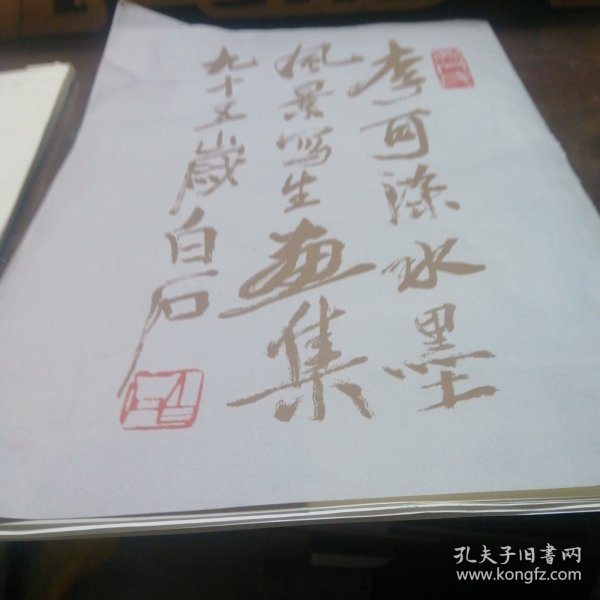 李可染水墨
风景写生画集
九十五岁白石
孔夫子旧书网
www.kongfz.com